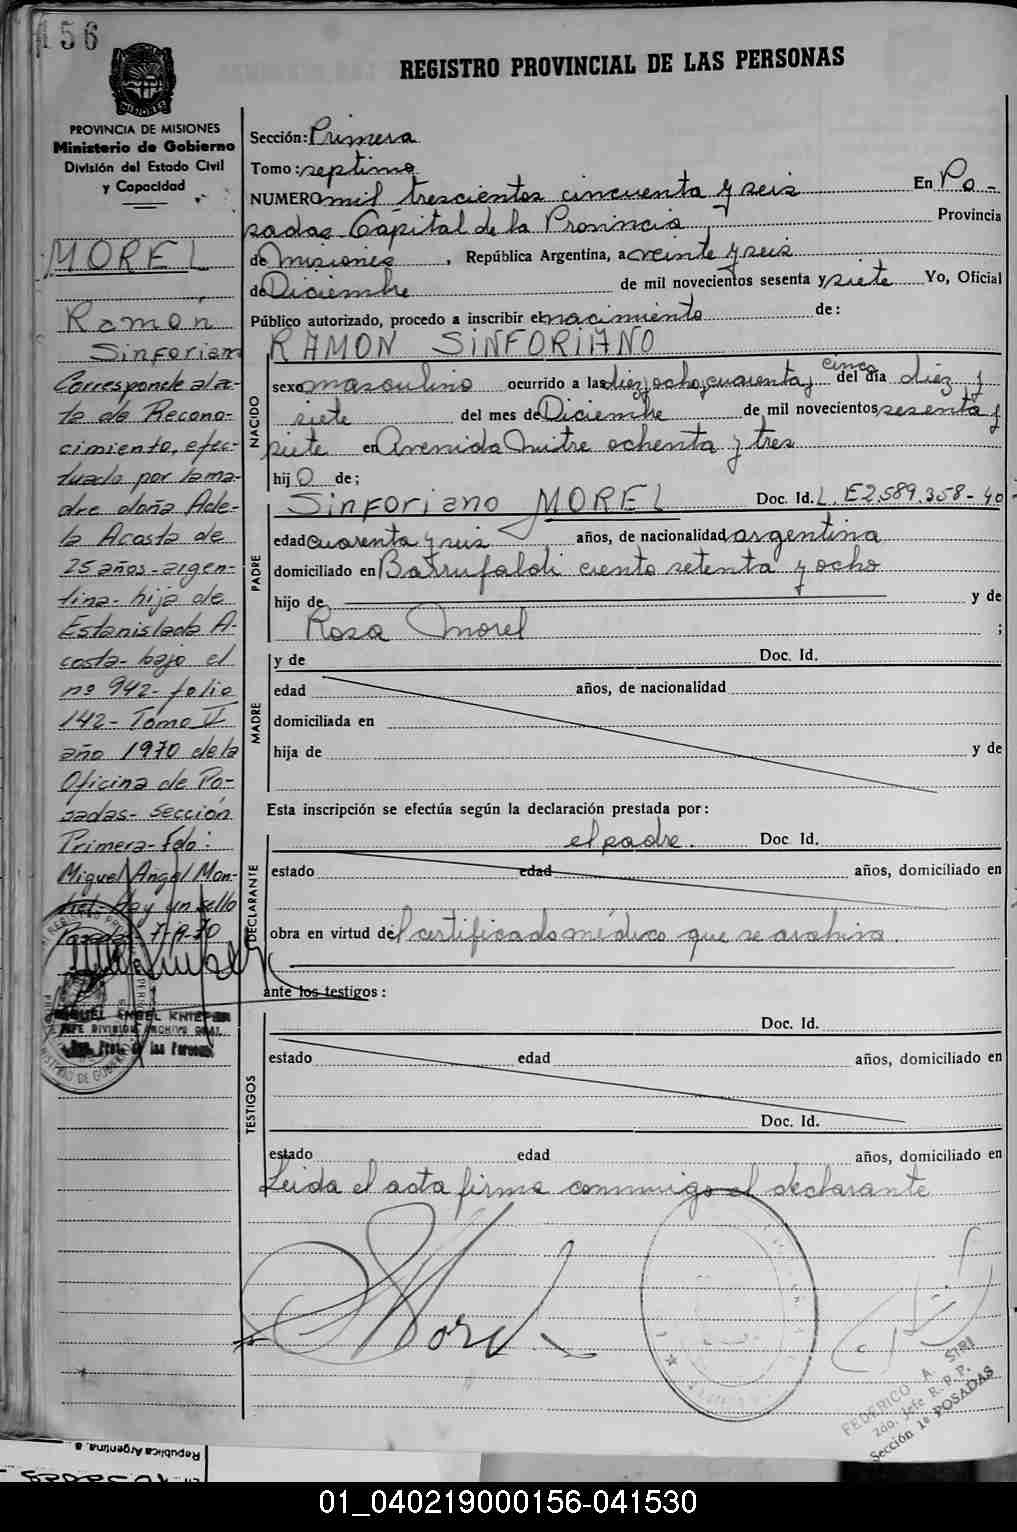 156
REGISTRO PROVINCIAL DE LAS PERSONAS
MISIONES
PROVINCIA DE MISIONES
Ministerio de Gobierno
División del Estado Civil
y Capacidad
MOREL
Ramón
Sinforian
Corresponde al ac-
ta de Recono-
cimiento, efec-
tuado por la ma-
dre doña Ade-
la Acosta de
25 años-argen-
tina-hija de
Estanislada A-
costa-bajo el
nº 942-folio
142-Tomo II
año 1970 de la
Oficina de Po-
sadas-Sección
Primera-Fdo:
Miguel Angel Mon-
tiel-Hay un sello
Posadas
JEFE DIVISION ARCHIVO GRAL.
Reg. Prov. de las Personas
Sección: Primera
Tomo: septimo
NUMERO mil trescientos cincuenta y seis En Po-
sadas Capital de la Provincia Provincia
de Misiones, República Argentina, a veinte y seis
de Diciembre de mil novecientos sesenta y siete Yo, Oficial
Público autorizado, procedo a inscribir el nacimiento de:
RAMON SINFORIANO
NACIDO
sexo masculino ocurrido a las diez y ocho, cuarenta y cinco del día diez y
siete del mes de Diciembre de mil novecientos sesenta y
siete en Avenida Mitre ochenta y tres
hijo de;
PADRE
Sinforiano MOREL Doc. Id. L.E 2.589.358-40
edad cuarenta y seis años, de nacionalidad argentina
domiciliado en Batrufaldi ciento setenta y ocho
hijo de y de
Rosa Morel ;
MADRE
y de Doc. Id.
edad años, de nacionalidad
domiciliada en
hija de y de
Esta inscripción se efectúa según la declaración prestada por:
DECLARANTE
el padre. Doc. Id.
estado edad años, domiciliado en
obra en virtud del certificado médico que se archiva.
ante los testigos:
TESTIGOS
Doc. Id.
estado edad años, domiciliado en
Doc. Id.
estado edad años, domiciliado en
Leida el acta firma conmigo el declarante
Morel
FEDERICO A. SIRI
2do. Jefe R. P. P.
Sección 1ª POSADAS
República Argentina, a
01_040219000156-041530